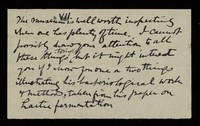 The museum is well worth inspecting
when one has plenty of time. I cannot
possibly hand your attention to all
these things today but it might interest
you if I show you one or two things
illustrating his bacteriological work
& methods, taken from his paper on
Lactic fermentation